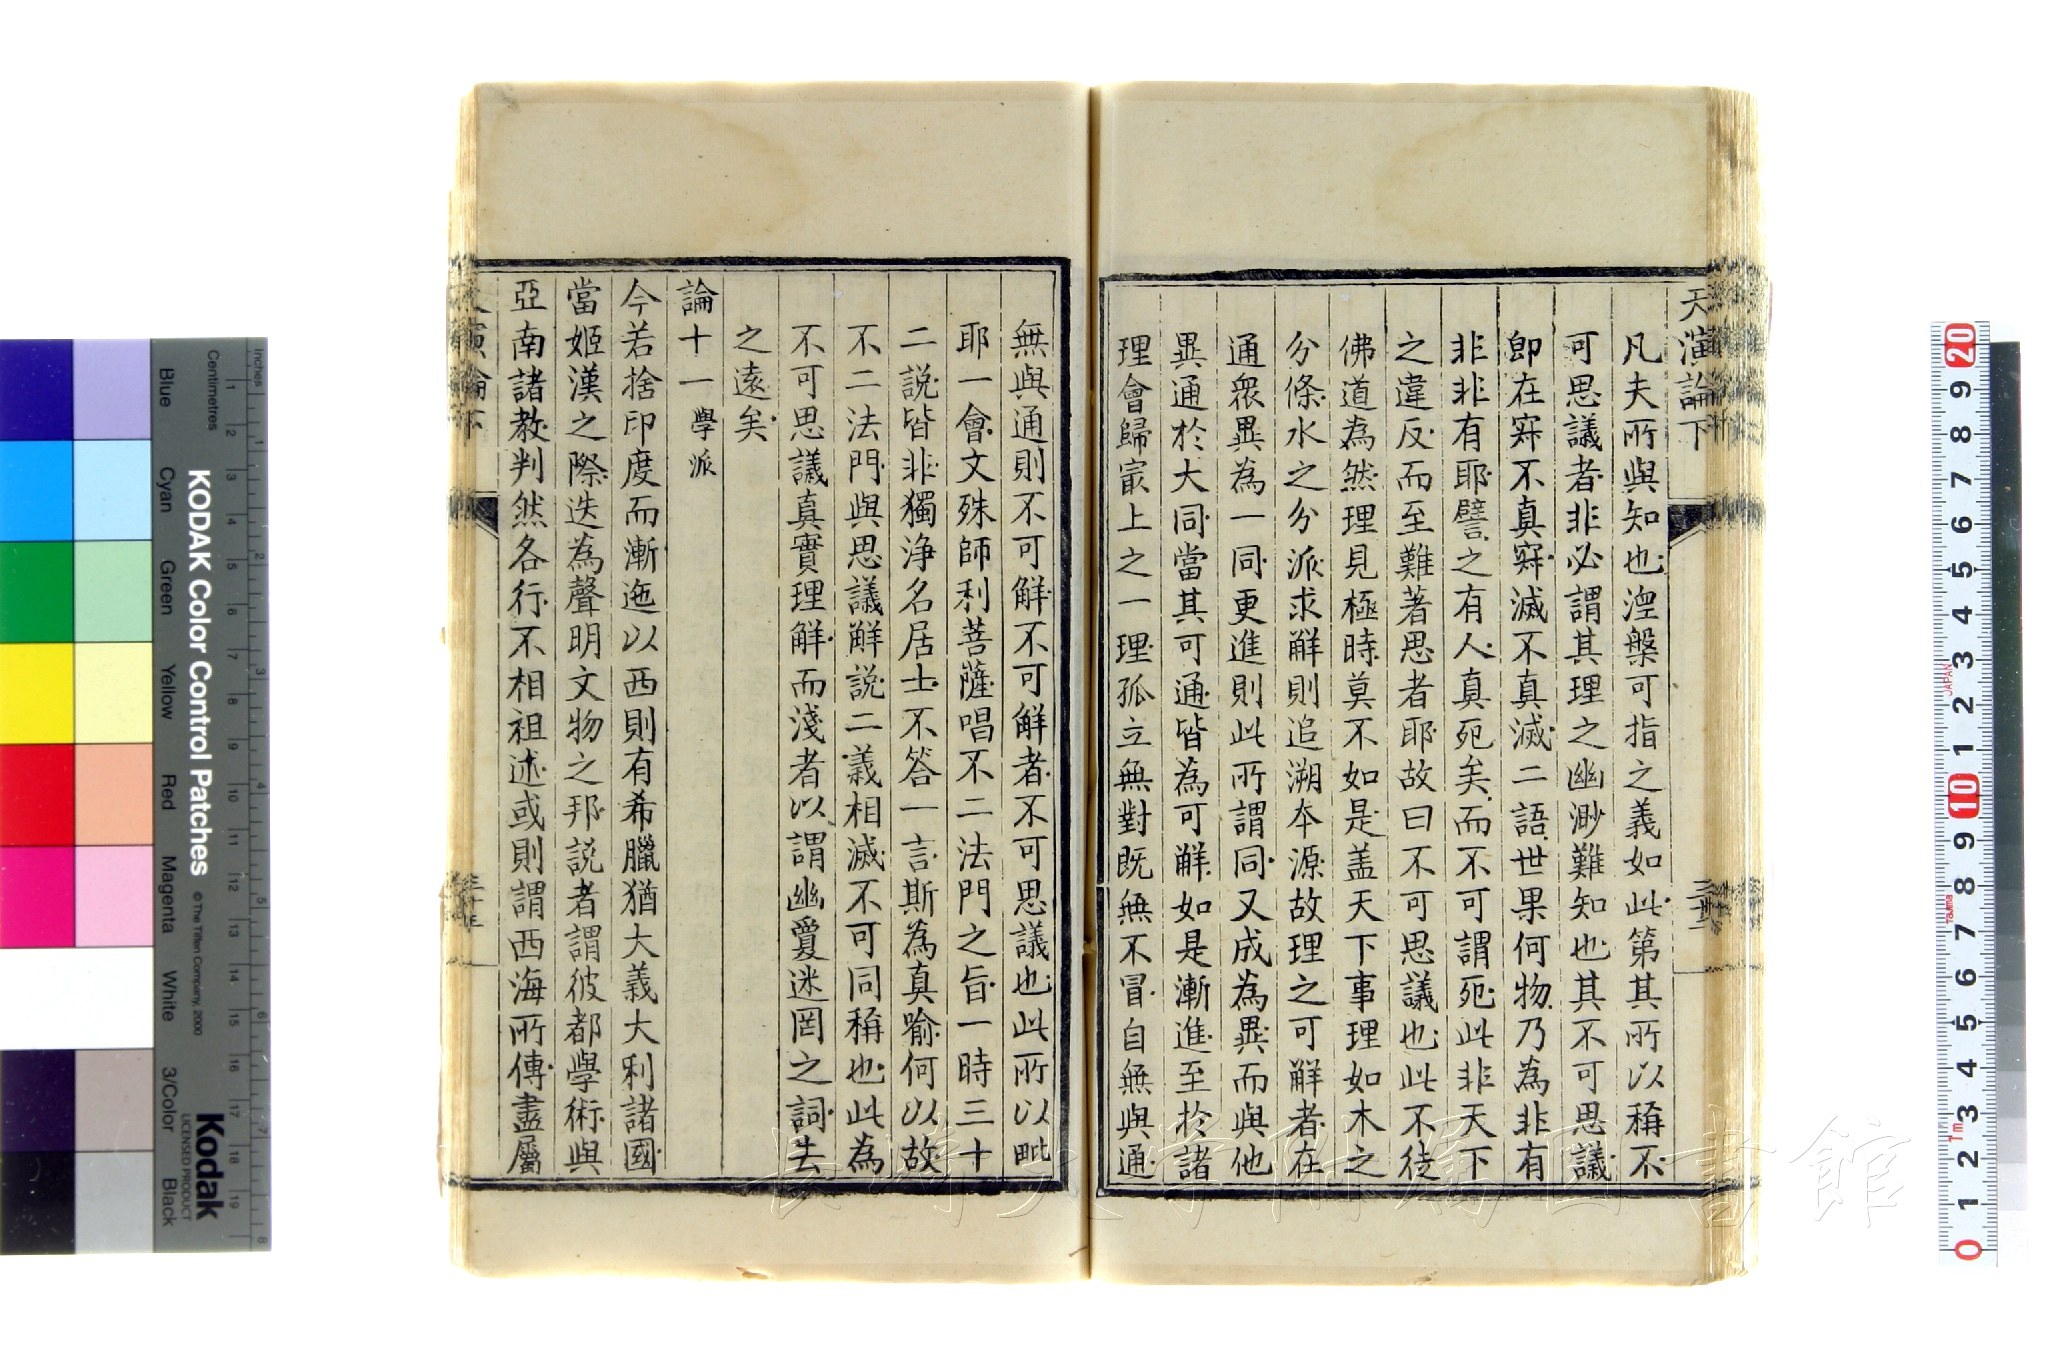 天演論下
凡夫所與知也湼槃可指之義如此第其所以稱不
可思議者非必謂其理之幽渺難知也其不可思議
卽在寂不真寂滅不真滅二語世果何物乃為非有
非非有耶譬之有人真死矣而不可謂死此非天下
之違反而至難著思者耶故曰不可思議也此不徒
佛道為然理見極時莫不如是蓋天下事理如木之
分條水之分派求觧則追溯本源故理之可觧者在
通衆異為一同更進則此所謂同又成為異而與他
異通於大同當其可通皆為可觧如是漸進至於諸
理會歸最上之一理孤立無對既無不冒自無與通
無與通則不可觧不可觧者不可思議也此所以毗
耶一會文殊師利菩薩唱不二法門之旨一時三十
二說皆非獨淨名居士不答一言斯為真喻何以故
不二法門與思議觧說二義相滅不可同稱也此為
不可思議真實理觧而淺者以謂幽夐迷罔之詞去
之遠矣
論十一 學派
今若捨印度而漸迤以西則有希臘猶大義大利諸國
當姬漢之際迭為聲明文物之邦說者謂彼都學術與
亞南諸教判然各行不相祖述或則謂西海所傳盡屬
KODAK Color Control Patches
© The Tiffen Company, 2000
Kodak
LICENSED PRODUCT
Inches
Centimetres
Blue
Cyan
Green
Yellow
Red
Magenta
White
3/Color
Black
JAPAN
Tajima
長崎大學附屬圖書館